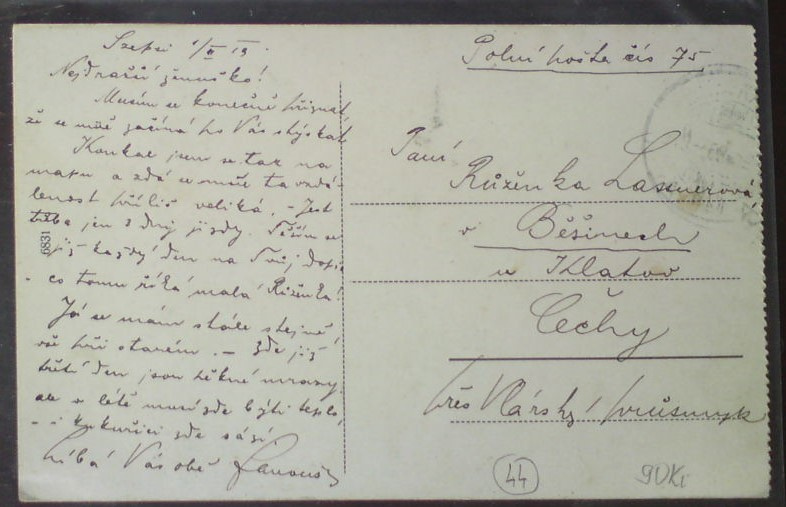 Szepsi 1/II 19.
Nejdražší ženuško!
Musím se konečně přiznat,
že se mně začíná po Vás stýskat.
Koukal jsem se tak na
mapu a zdá se mně ta vzdá-
lenost příliš veliká. - Jest
třeba jen 3 dny jízdy. Těším se
již každý den na Tvůj dopis
- co tomu říká malá Růženka!
Já se mám stále stejně,
vše při starém. - Zde již
třetí den jsou pěkné mrazy,
ale v létě musí zde býti teplo,
- i kukuřici zde sází.
Líbá Vás obě
6831
Polní pošta čís 75
Paní
Růženka Lassnerová
v Běšinech
u Klatov
Čechy
přes Vlárský průsmyk
44
90Kč